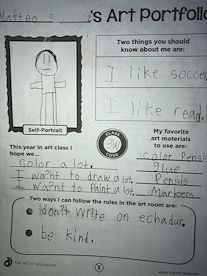 Matteo S 's Art Portfolio
Two things you should
know about me are:
I like soccer
I like read.
Self-Portrait
CLASS
CODE
3W
My favorite
art materials
to use are:
This year in art class I
hope we...
color a lot.
I want to draw a lot.
I want to Paint a lot.
Color Pensls
glue
Pensls
Markers
Two ways I can follow the rules in the art room are:
don't write on echadur.
be kind.
the art of education
1